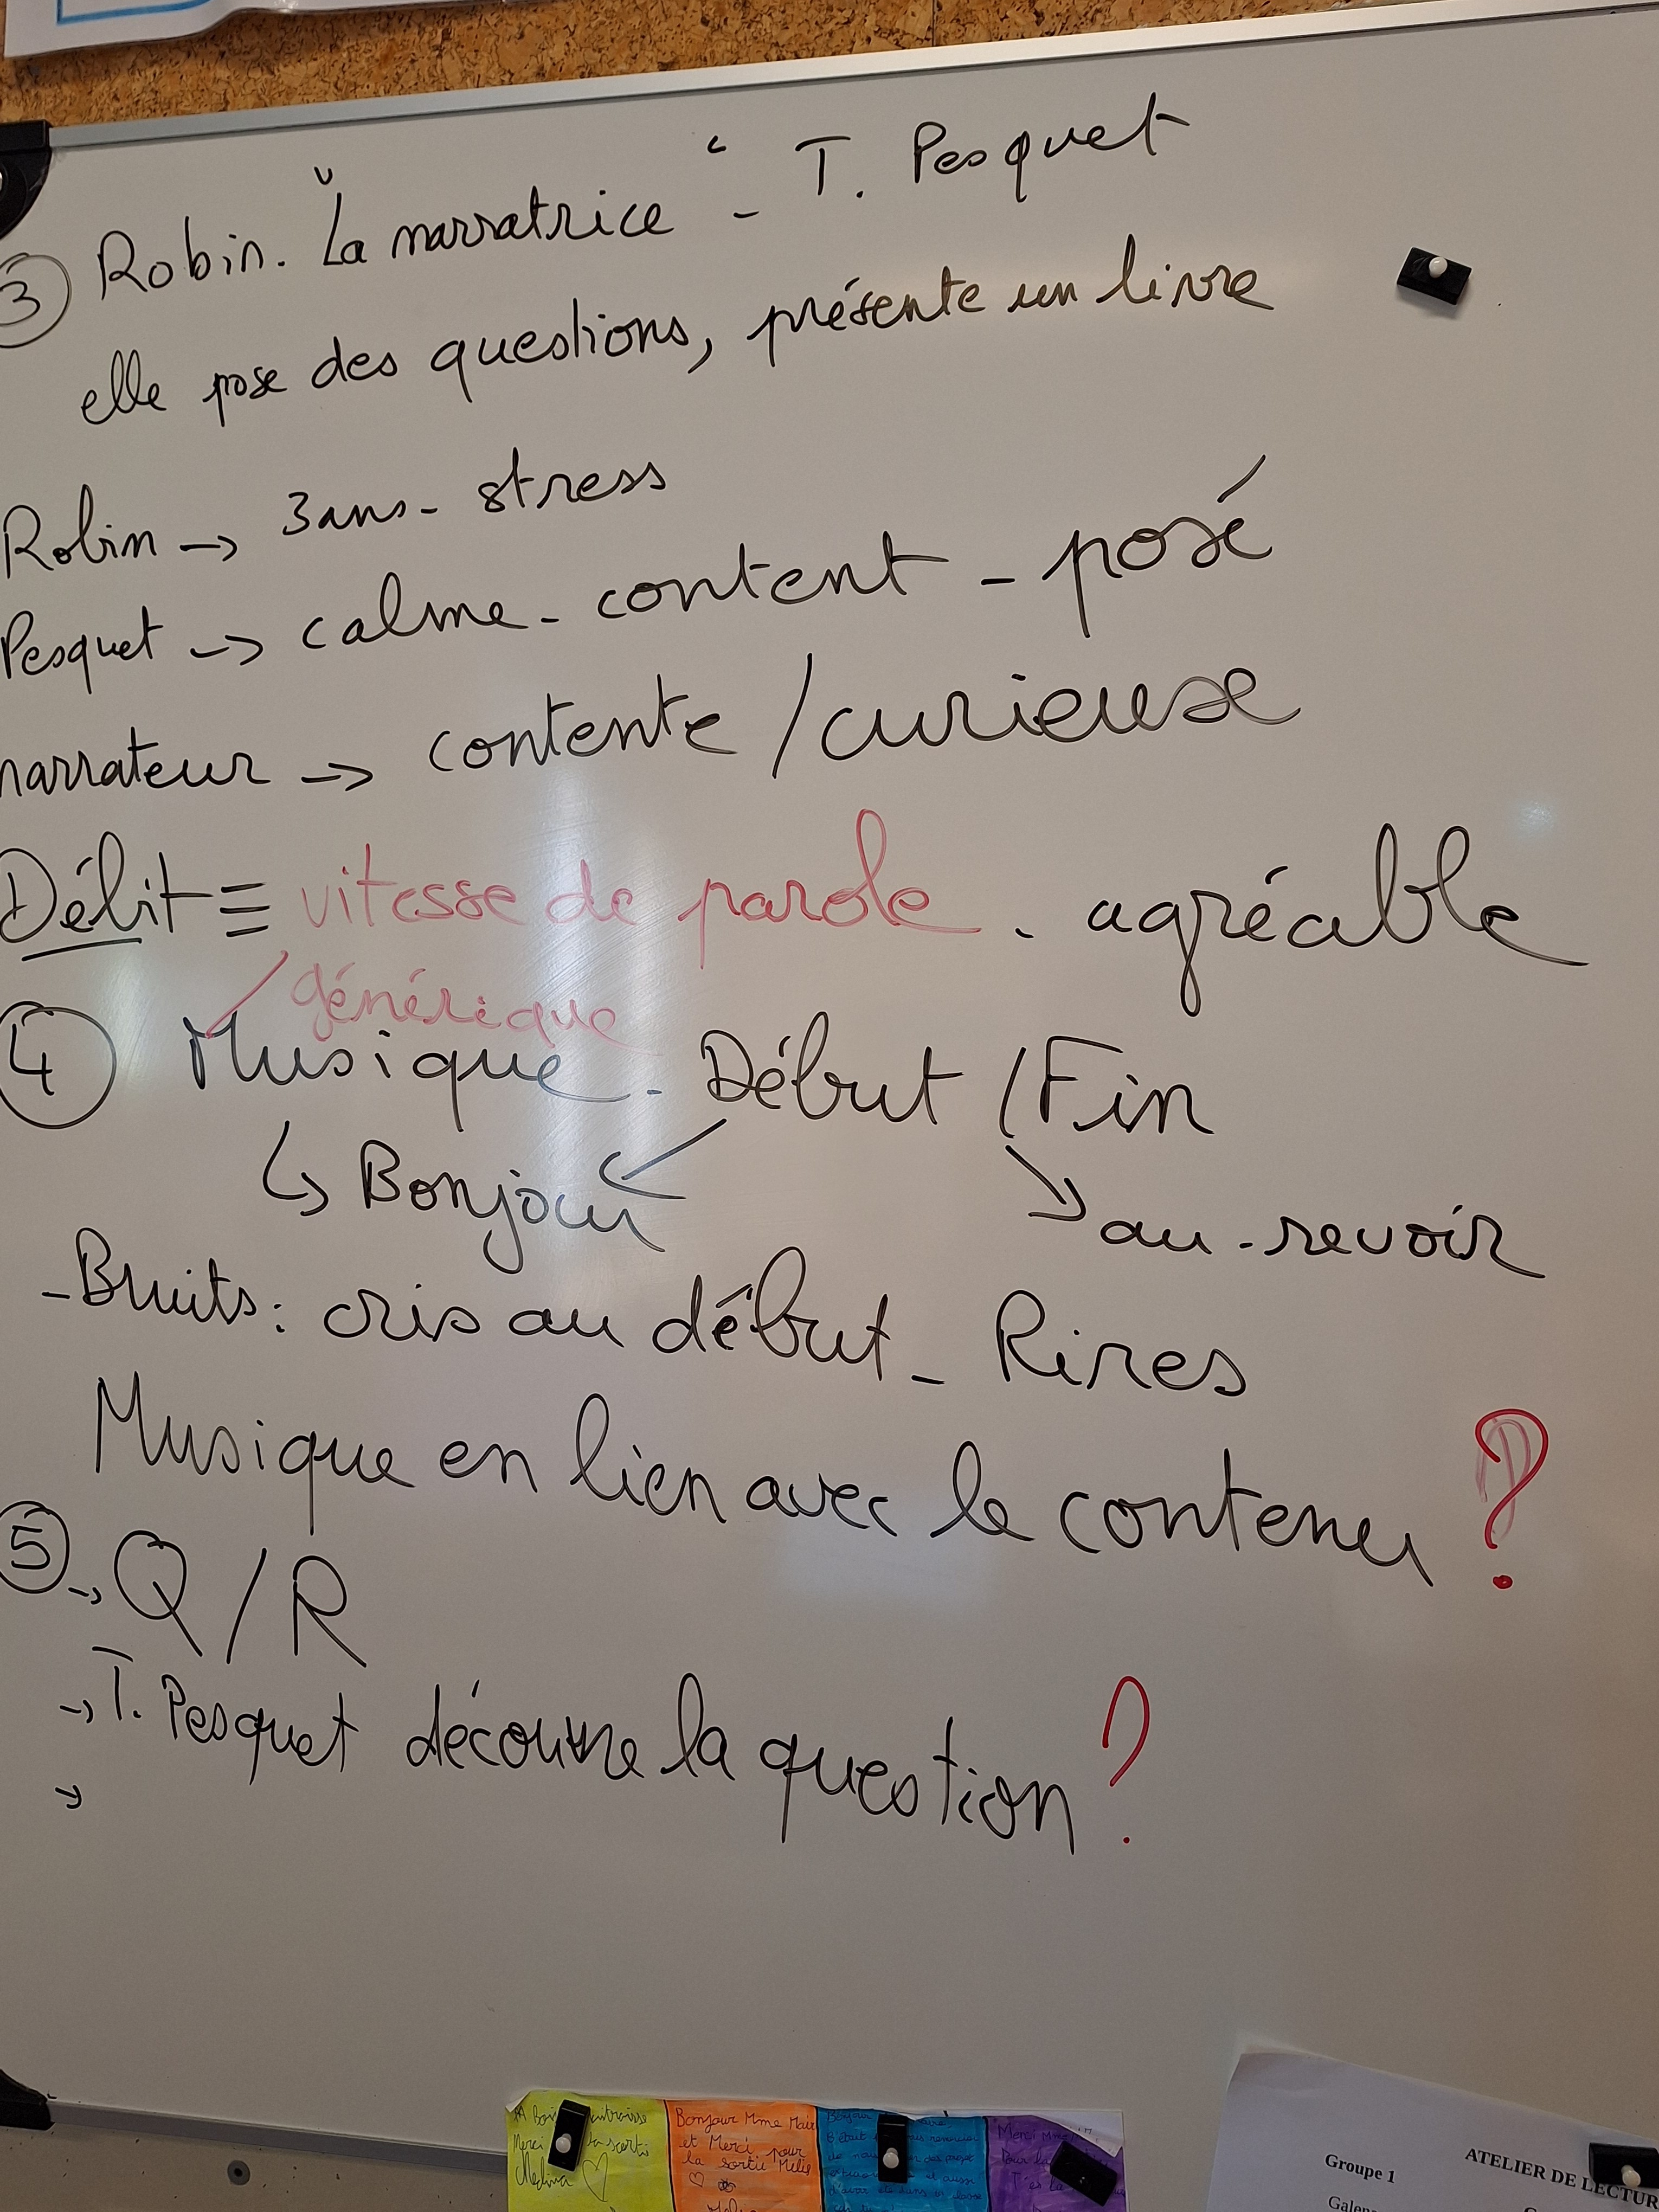 ③ Robin. "La narratrice" - T. Pesquet
elle pose des questions, présente un livre
Robin → 3ans - stress
Pesquet → calme - content - posé
narrateur → contente / curieuse
Débit ≡ vitesse de parole . agréable
générique
④ Musique - Début / Fin
↳ Bonjour ↘ au-revoir
- Bruits : cris au début - Rires
Musique en lien avec le contenu ?
⑤ → Q / R
→ T. Pesquet découvre la question ?
→
Merci
Bonjour Mme
et Merci pour
la sortie
Merci
Groupe 1
ATELIER DE LECTUR